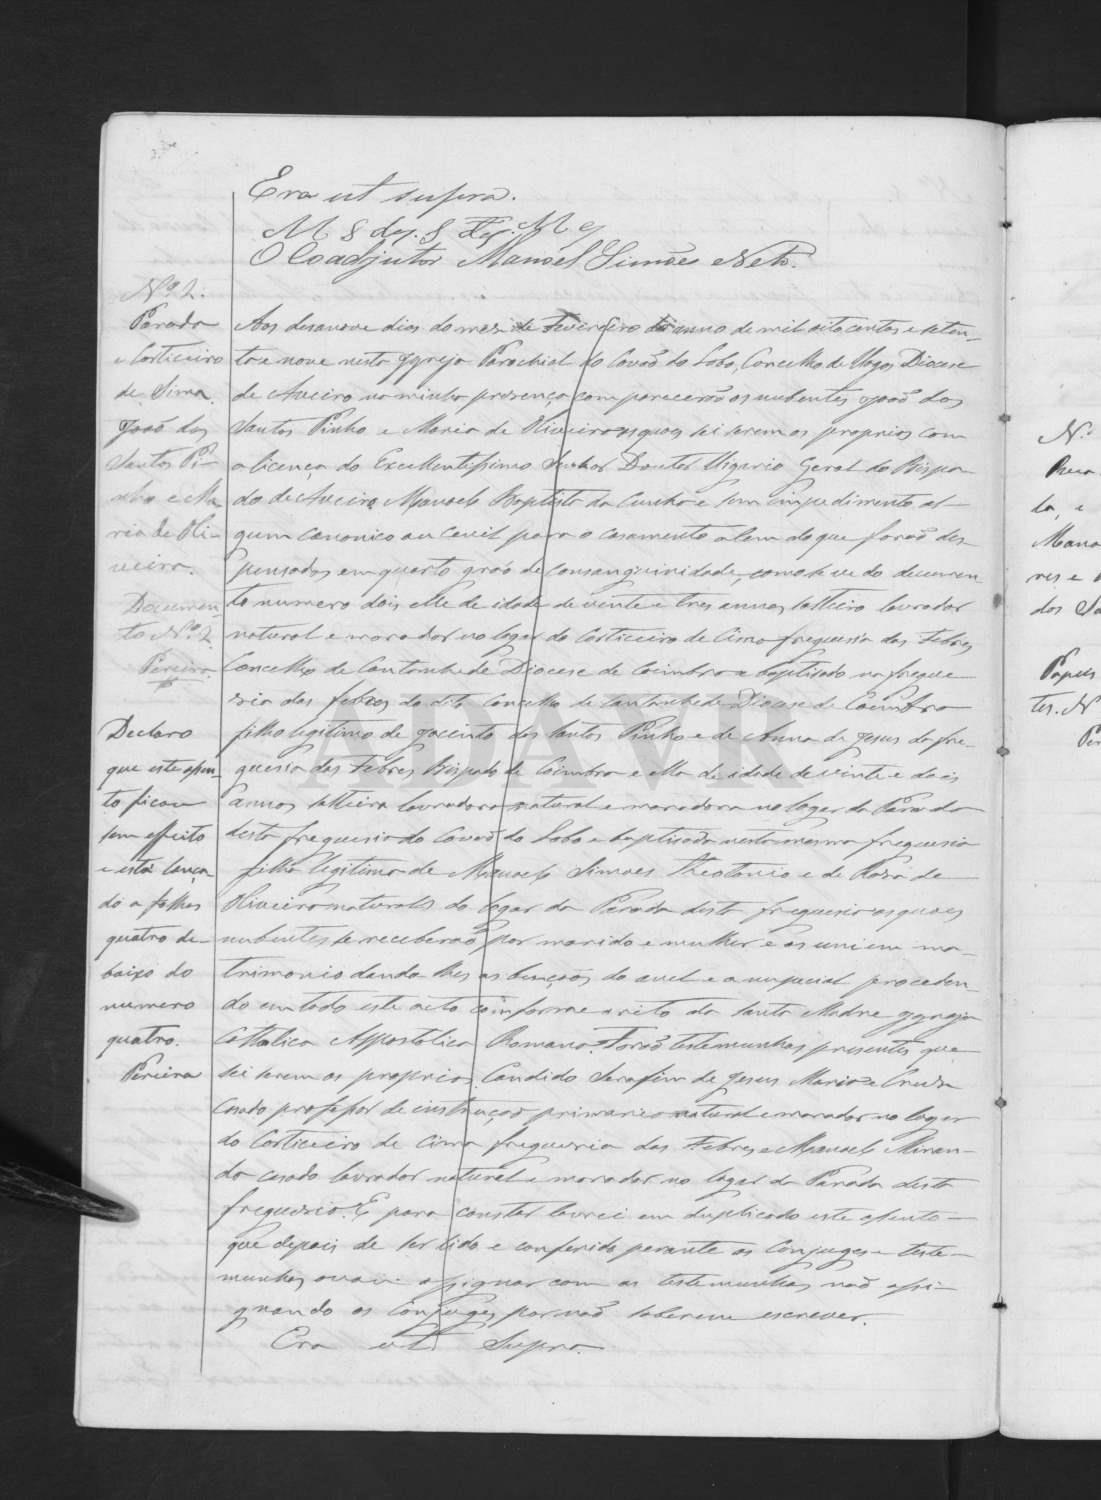 Era ut supra.
O Coadjutor Manoel Simões Neto.
Nº 2.
Parada
e Corticeiro
de Sima.
João dos
Santos Pi-
nho e Ma-
ria de Oli-
veira.
Documen-
to Nº 2
Pereira.
Declaro
que este assen-
to ficou
sem effeito
e está lança-
do a folhas
quatro de-
baixo do
numero
quatro.
Pereira
Aos desanove dias do mes de Fevereiro do anno de mil oitocentos e seten-
ta e nove nesta Ygreja Parochial do Covão do Lobo, Concelho de Vagos Diocese
de Aveiro na minha presença comparecerão os nubentes João dos
Santos Pinho e Maria de Oliveira os quaes sei serem os proprios com
a licença do Excellentissimo Senhor Doutor Vigario Geral do Bispa-
do de Aveiro Manoel Baptista da Cunha e sem impedimento al-
gum canonico ou cevil para o casamento alem do que forão des-
pensados em quarto gráo de consanguinidade, como se ve do documen-
to numero dois elle de idade de vinte e tres annos solteiro lavrador
natural e morador no logar do Corticeiro de Cima freguesia das Febres
Concelho de Cantanhede Diocese de Coimbra e baptisado na fregue-
sia das Febres do dito Concelho de Cantanhede Diocese de Coimbra
filho legitimo de Jacinto dos Santos Pinho e de Anna de Jesus da fre-
guesia das Febres Bispado de Coimbra e ella de idade de vinte e dois
annos solteira lavradora natural e moradora no logar da Parada
desta freguesia do Covão do Lobo e baptisada nesta mesma freguesia
filha legitima de Manoel Simoes Theotonio e de Rosa de
Oliveira naturales do logar da Parada desta freguesia os quaes
nubentes se receberaõ por marido e mulher e os uni em ma-
trimonio dando lhes as bençãos do anel e a nupcial proceden-
do em todo este acto comforme o rito da Santa Madre Ygreja
Catholica Appostolica Romana. Forão testemunhas presentes que
sei serem os proprios. Candido Serafim de Jesus Maria e Cruz
casado professor de instrucção primaria natural e morador no logar
do Corticeiro de Cima freguesia das Febres e Manoel Miran-
da casado lavrador natural e morador no logar da Parada desta
freguesia. E para constar lavrei em duplicado este assento
que depois de ser lido e conferido perante os Conjuges e teste-
munhas assignar com as testemunhas não assi-
gnando os Conjuges por não saberem escrever.
Era ut Supra.
Nº
Manoel
dos
Papeis
ADAVR